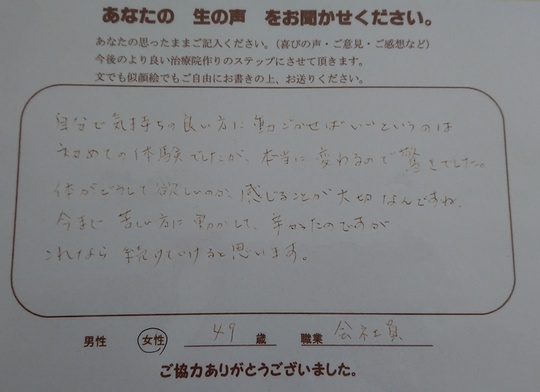 あなたの 生の声 をお聞かせください。
あなたの思ったままご記入ください。(喜びの声・ご意見・ご感想など)
今後のより良い治療院作りのステップにさせて頂きます。
文でも似顔絵でもご自由にお書きの上、お送りください。
自分で気持ちの良い方に動ごかせばいいというのは
初めての体験でしたが、本当に変わるので驚きでした。
体がどうして欲しいのか、感じることが大切なんですね。
今まで苦しい方に動かして、辛かったのですが
これなら続けていけると思います。
男性 女性 49 歳 職業 会社員
ご協力ありがとうございました。